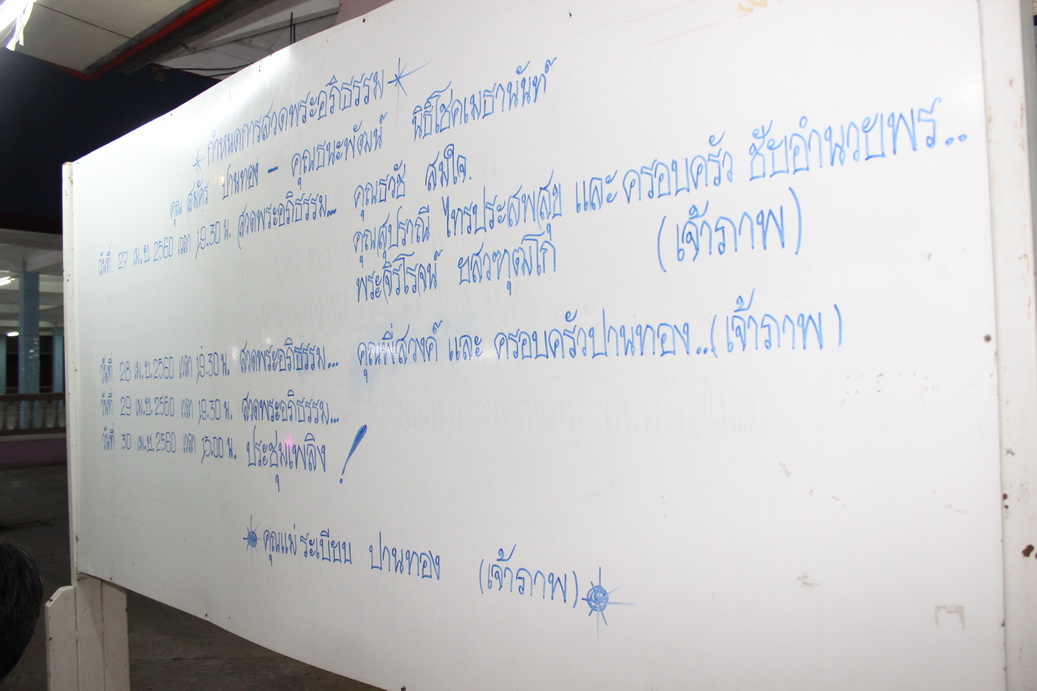 กำหนดการสวดพระอภิธรรม
คุณ สมัคร ปานทอง - คุณธนะพัฒน์ นิธิโชคเมธานันท์
วันที่ 27 เม.ย. 2560 เวลา 19.30 น. สวดพระอภิธรรม... คุณธวัช สมใจ.
คุณสุปราณี ไทรประสพสุข และครอบครัว ชัยอำนวยพร..
พระจิรโรจน์ (เจ้าภาพ)
วันที่ 28 เม.ย. 2560 เวลา 19.30 น. สวดพระอภิธรรม... คุณพี่สวงค์ และ ครอบครัวปานทอง..(เจ้าภาพ)
วันที่ 29 เม.ย. 2560 เวลา 19.30 น. สวดพระอภิธรรม...
วันที่ 30 เม.ย. 2560 เวลา 15.00 น. ประชุมเพลิง !
คุณแม่ ระเบียบ ปานทอง (เจ้าภาพ)